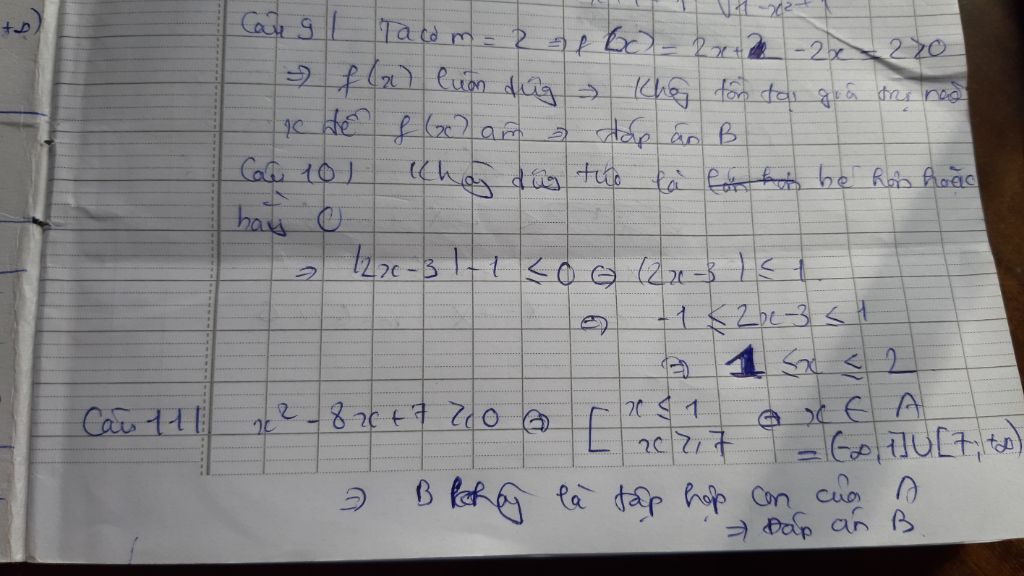 +∞)
√1-x²+1
Câu 9| Ta có m = 2 => f(x) = 2x+2 -2x-2≥0
=> f(x) luôn đúg => Khôg tồn tại giá trị nào
x để f(x) âm => đáp án B
Câu 10| Khôg dươg tức là bé hơn hoặc
bằng 0
=> |2x-3|-1 ≤0 <=> |2x-3| ≤ 1
<=> -1 ≤2x-3 ≤ 1
=> 1 ≤x ≤ 2
Câu 11| x²-8x+7 ≥0 <=> [ x ≤ 1
x≥7 <=> x ∈ A
= (-∞,1]∪[7;+∞)
=> B khôg là tập hợp con của A
=> Đáp án B